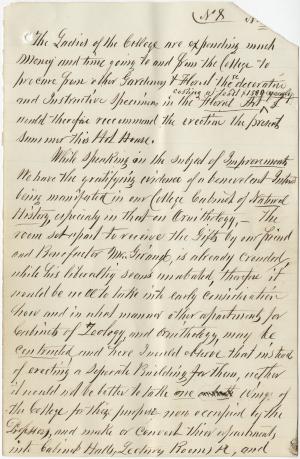 No 8
The Ladies of the College are expending much
Money and time going to and from the College to
procure from other Gardens & Floral the decorative
costing at least $1500 annually
and Instructive Specimen in the Floral Art, I
would therefore recommend the erection the present
summer this Hot House.
While speaking on the subject of Improvements
We have the gratifying evidence of a benevolent Interest
being manifested in our College Cabinet of Natural
History, especialy in that on Ornithology, — The
room set apart to receive the Gifts by our friend
and Benefactor Mr. Giraud, is already crowded,
while his liberality seems unabated, therefore it
would be well to take into early consideration
how and in what manner other apartments for
Cabinets of Zoology, and Ornithology, may be
contrived and here I would observe that instead
of erecting a Seperate Building for them, wether
it would not be better to take one wings of
the College for this purpose now occupied by the
Professors, and make or convert their apartments
into Cabinet Halls, Lecture Rooms &c, and